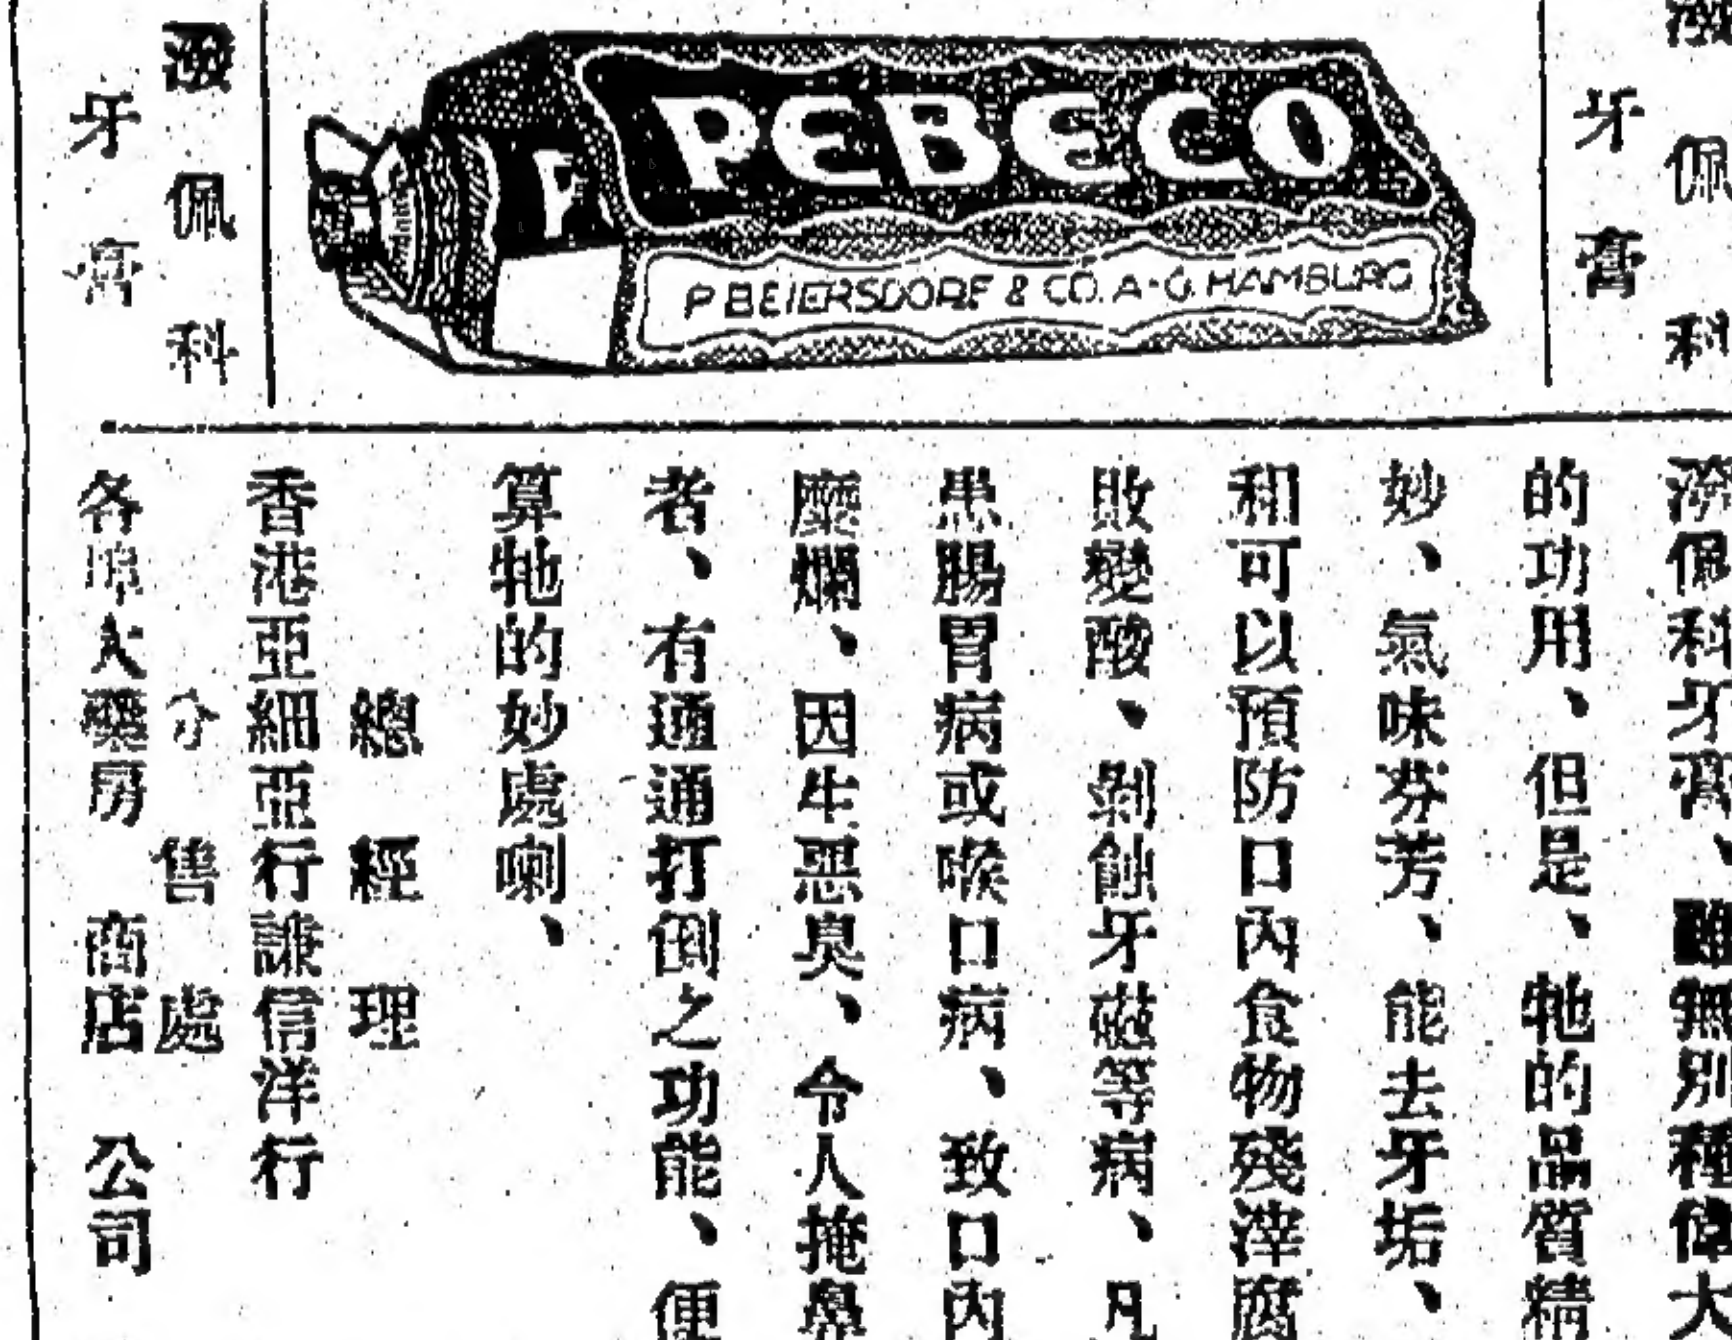 潑佩科
牙膏
PEBECO
P. BEIERSDORF & CO. A-G. HAMBURG
潑佩科
牙膏
潑佩科牙膏、雖無別種偉大
的功用、但是、牠的品質精
妙、氣味芬芳、能去牙垢、
和可以預防口內食物殘滓腐
敗變酸、剝蝕牙磁等病、凡
患腸胃病或喉口病、致口內
糜爛、因生惡臭、令人掩鼻
者、有通通打倒之功能、便
算牠的妙處喇、
總經理
香港亞細亞行謙信洋行
分售處
各埠大藥房 商店 公司